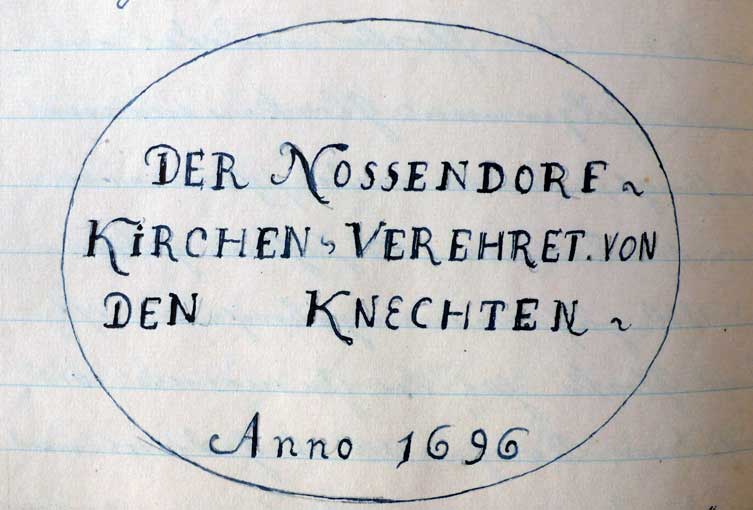 DER NOSSENDORF ~
KiRCHEN, VEREHRET. VON
DEN KNECHTEN ~
Anno 1696